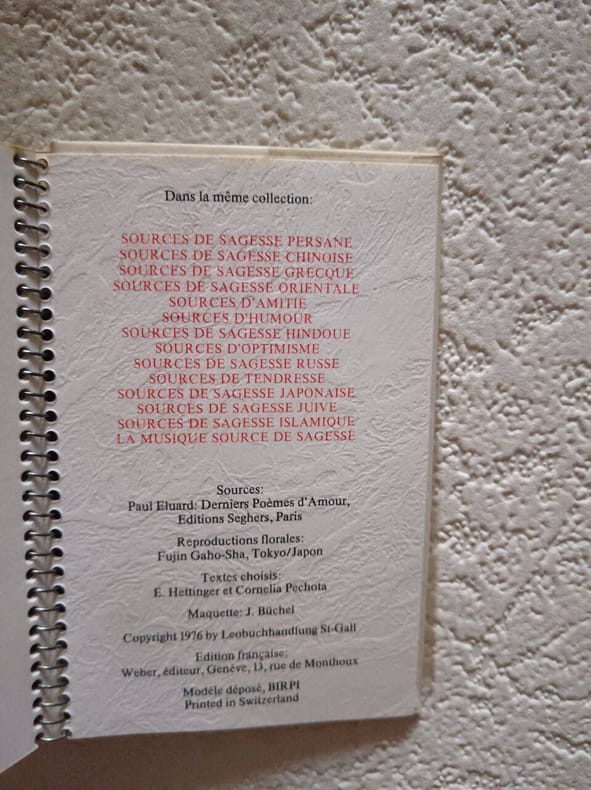 Dans la même collection:
SOURCES DE SAGESSE PERSANE
SOURCES DE SAGESSE CHINOISE
SOURCES DE SAGESSE GRECQUE
SOURCES DE SAGESSE ORIENTALE
SOURCES D'AMITIE
SOURCES D'HUMOUR
SOURCES DE SAGESSE HINDOUE
SOURCES D'OPTIMISME
SOURCES DE SAGESSE RUSSE
SOURCES DE TENDRESSE
SOURCES DE SAGESSE JAPONAISE
SOURCES DE SAGESSE JUIVE
SOURCES DE SAGESSE ISLAMIQUE
LA MUSIQUE SOURCE DE SAGESSE
Sources:
Paul Eluard: Derniers Poèmes d'Amour,
Editions Seghers, Paris
Reproductions florales:
Fujin Gaho-Sha, Tokyo/Japon
Textes choisis:
E. Hettinger et Cornelia Pechota
Maquette: J. Büchel
Copyright 1976 by Leobuchhandlung St-Gall
Edition française:
Weber, éditeur, Genève, 13, rue de Monthoux
Modèle déposé, BIRPI
Printed in Switzerland